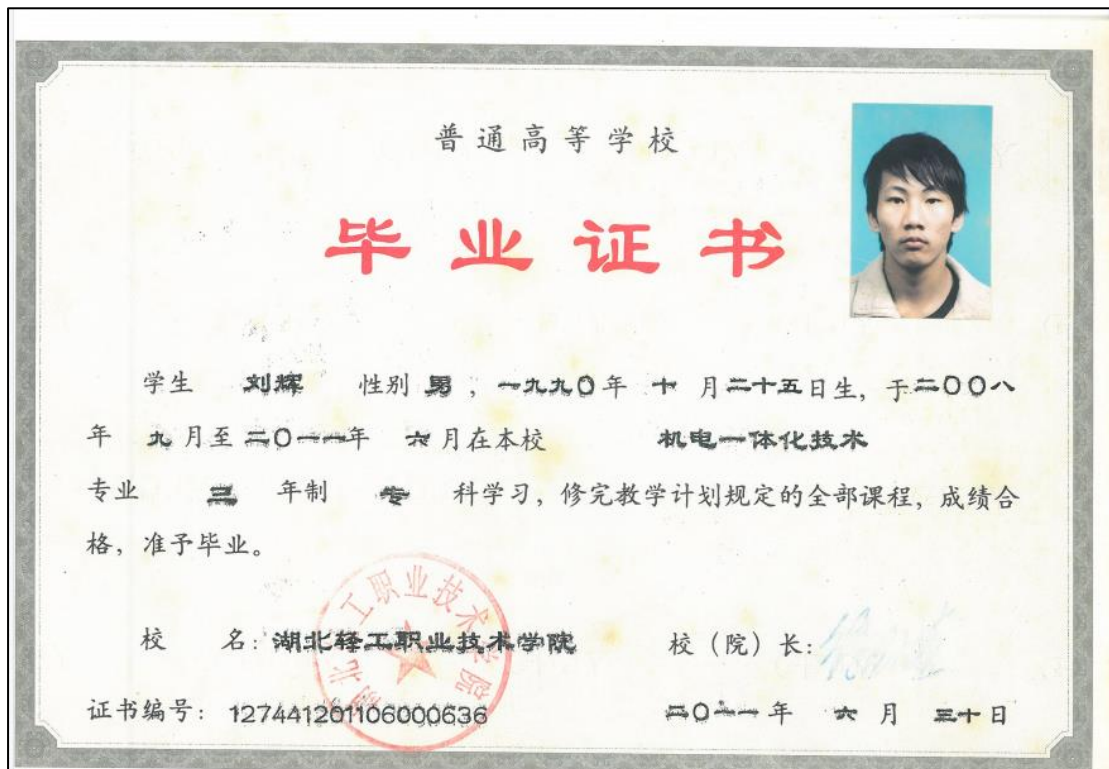 普通高等学校
毕业证书
学生 刘辉 性别 男，一九九〇年 十 月二十五日生，于二〇〇八
年 九月至二〇一一年 六月在本校 机电一体化技术
专业 三 年制 专 科学习，修完教学计划规定的全部课程，成绩合
格，准予毕业。
湖北轻工职业技术学院
校 名：湖北轻工职业技术学院 校（院）长：
证书编号：127441201106000636 二〇一一年 六 月 三十日